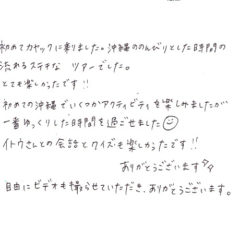 初めてカヤックに乗りました。沖縄ののんびりとした時間の
流れるステキな ツアーでした。
とても楽しかったです!!
初めての沖縄でいくつかアクティビティを楽しみましたが
一番ゆっくりした時間を過ごせました☺
イトウさんとの会話とクイズも楽しかったです!!
ありがとうございます
自由にビデオも撮らせていただき、ありがとうございます。